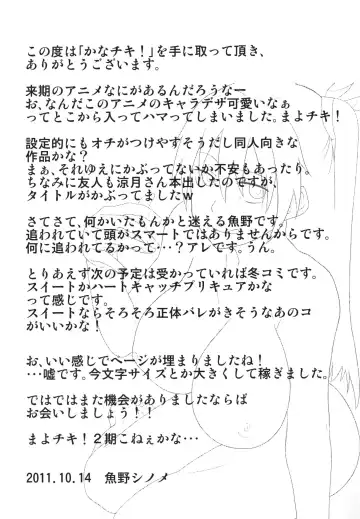 この度は「かなチキ!」を手に取って頂き、
ありがとうございます。
来期のアニメなにがあるんだろうなー
お、なんだこのアニメのキャラデザ可愛いなぁ
ってとこから入ってハマってしまいました。まよチキ!
設定的にもオチがつけやすそうだし同人向きな
作品かな?
まぁ、それゆえにかぶってないか不安もあったり。
ちなみに友人も涼月さん本出したのですが、
タイトルがかぶってましたw
さてさて、何かいたもんかと迷える魚野です。
追われていて頭がスマートではありませんからです。
何に追われてるかって・・・?アレです。うん。
とりあえず次の予定は受かっていれば冬コミです。
スイートかハートキャッチプリキュアかな
って感じです。
スイートならそろそろ正体バレがきそうなあのコ
がいいかな!
お、いい感じでページが埋まりましたね!
・・・嘘です。今文字サイズとか大きくして稼ぎました。
ではではまた機会がありましたならば
お会いしましょう!!
まよチキ!2期こねぇかな・・・
2011.10.14 魚野シノメ